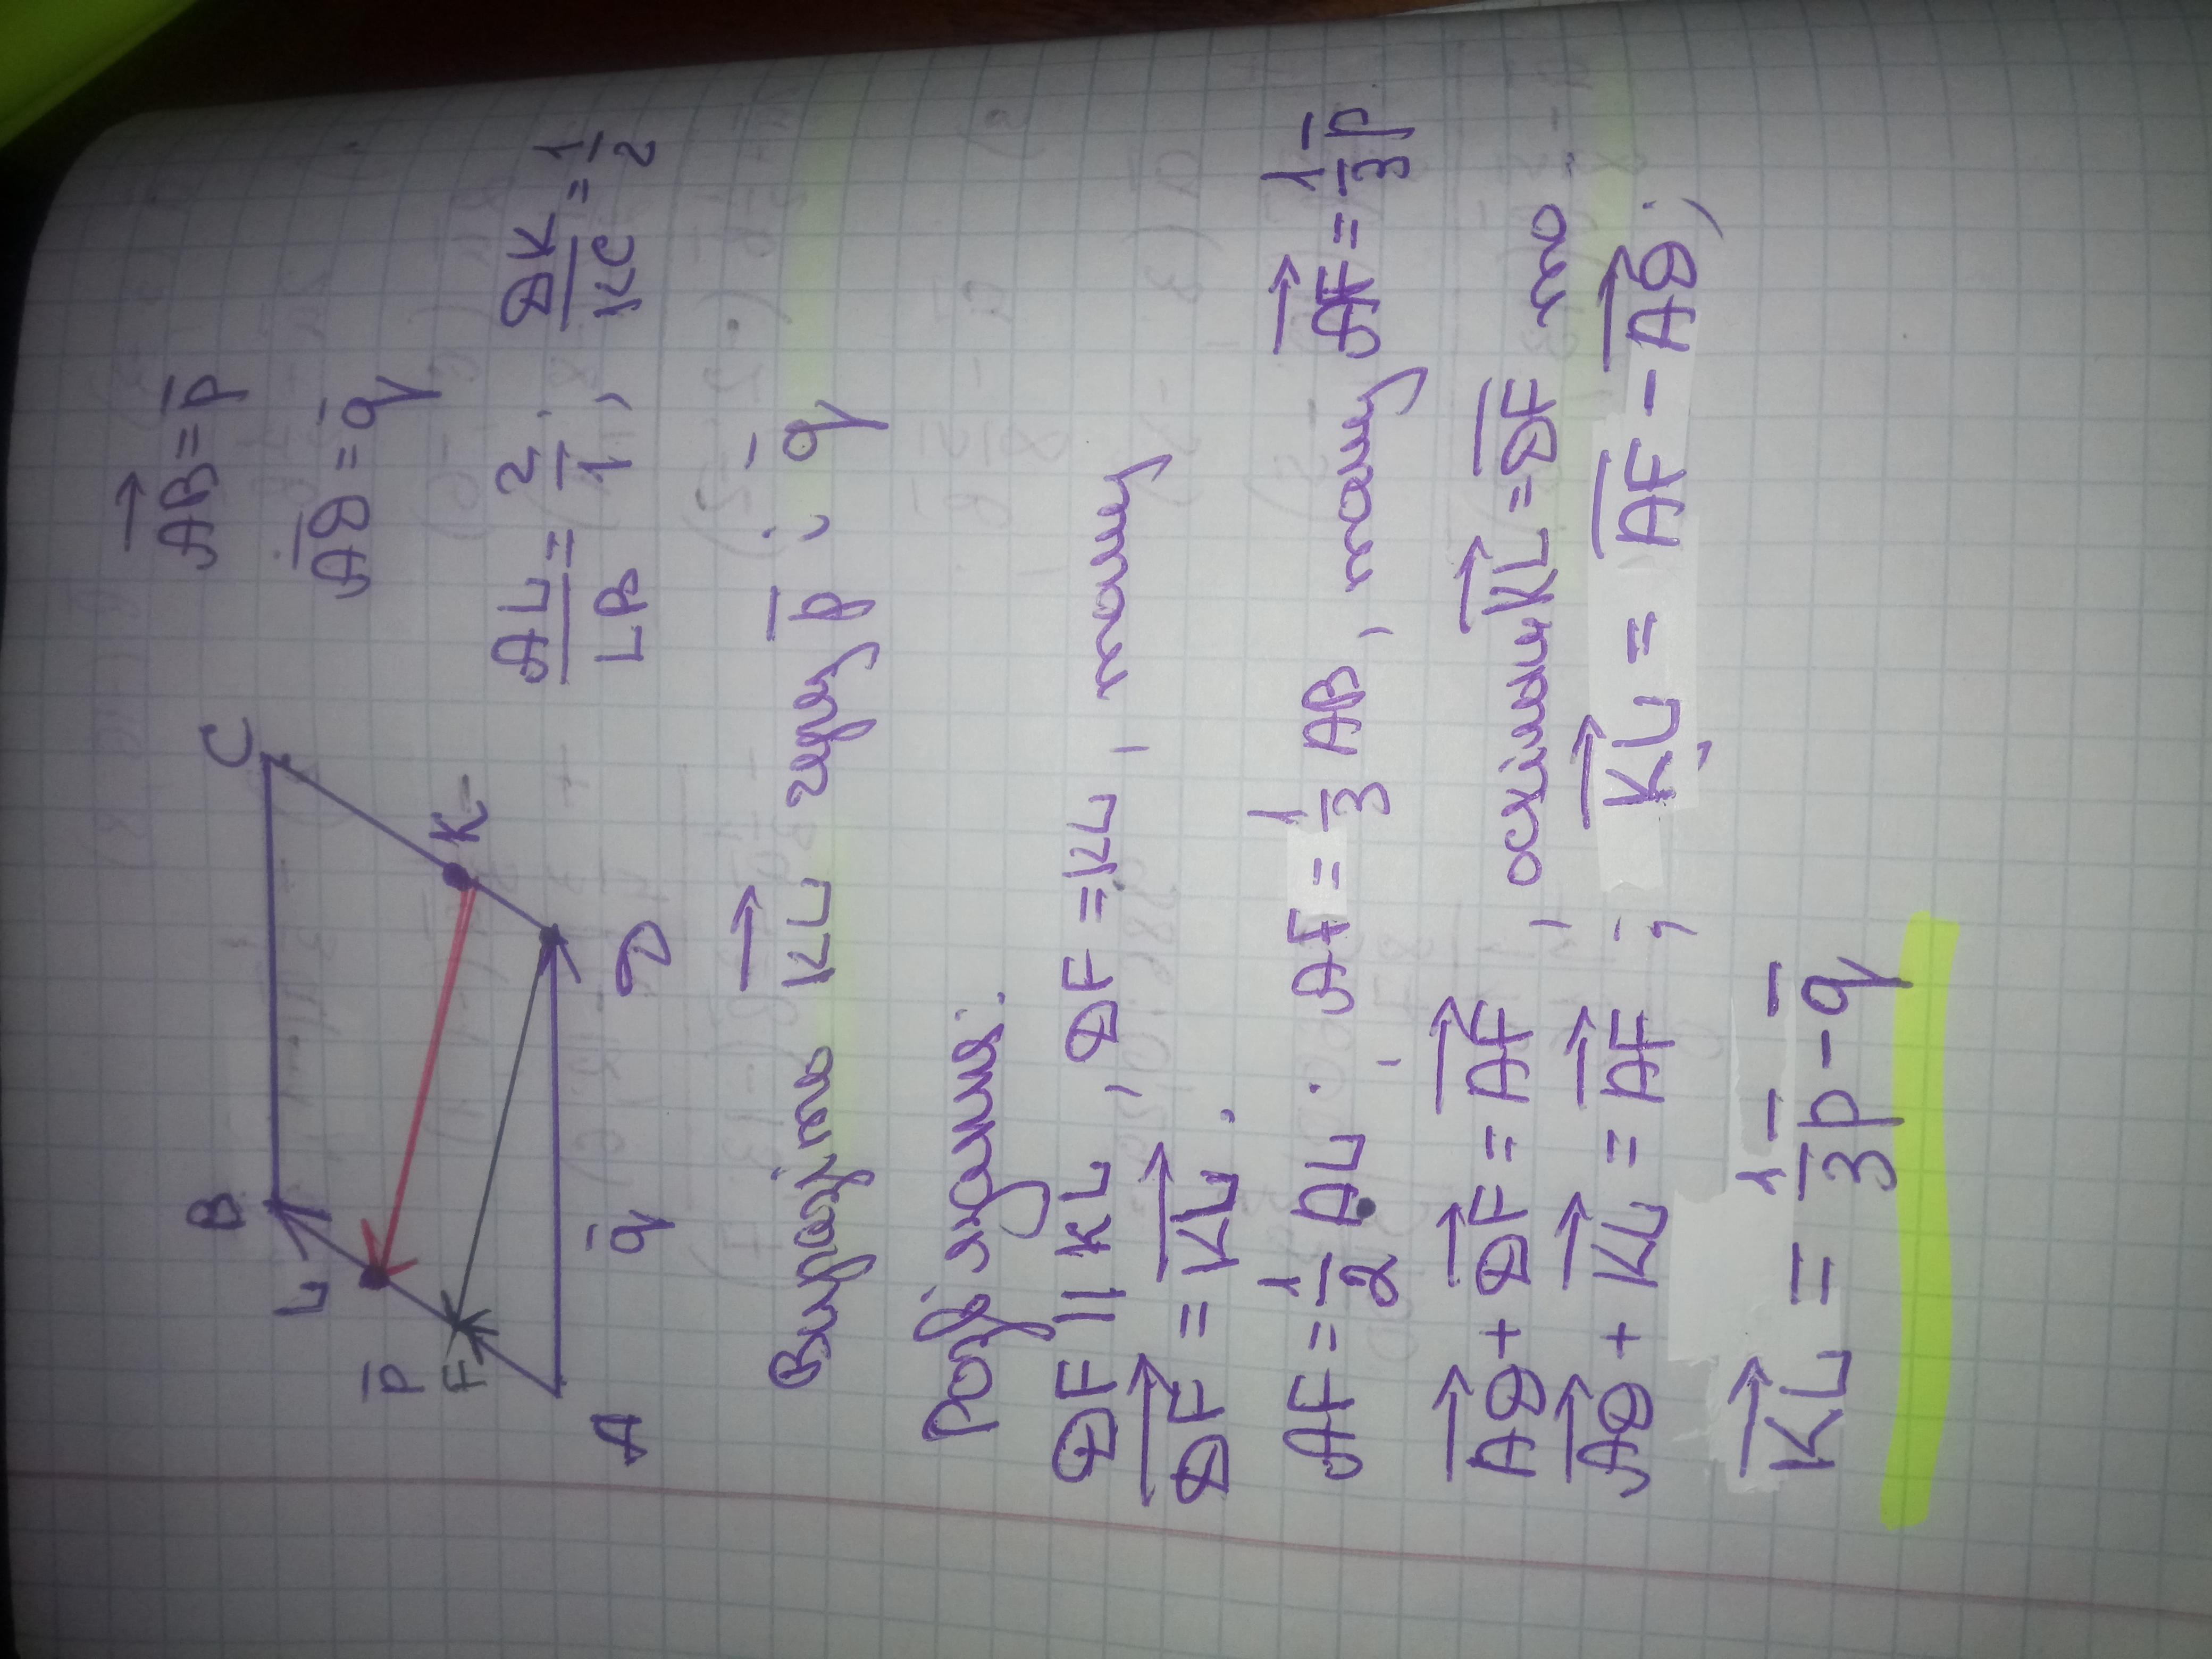 B
C
L
K
p̄
F
A
q̄
D
A͞B⃗ = p̄
A͞D = q̄
AL/LB = 2/1, DK/KC = 1/2
Виразімо K͞L⃗ через p̄ і q̄
Розв'язання.
DF || KL, DF = KL, тому
D͞F⃗ = K͞L⃗.
AF = 1/2 AL. AF = 1/3 AB, тому A͞F⃗ = 1/3 p̄
A͞D⃗ + D͞F⃗ = A͞F⃗, оскільки K͞L⃗ = D͞F то
A͞D⃗ + K͞L⃗ = A͞F⃗; K͞L⃗ = A͞F - A͞D⃗;
K͞L⃗ = 1/3 p̄ - q̄